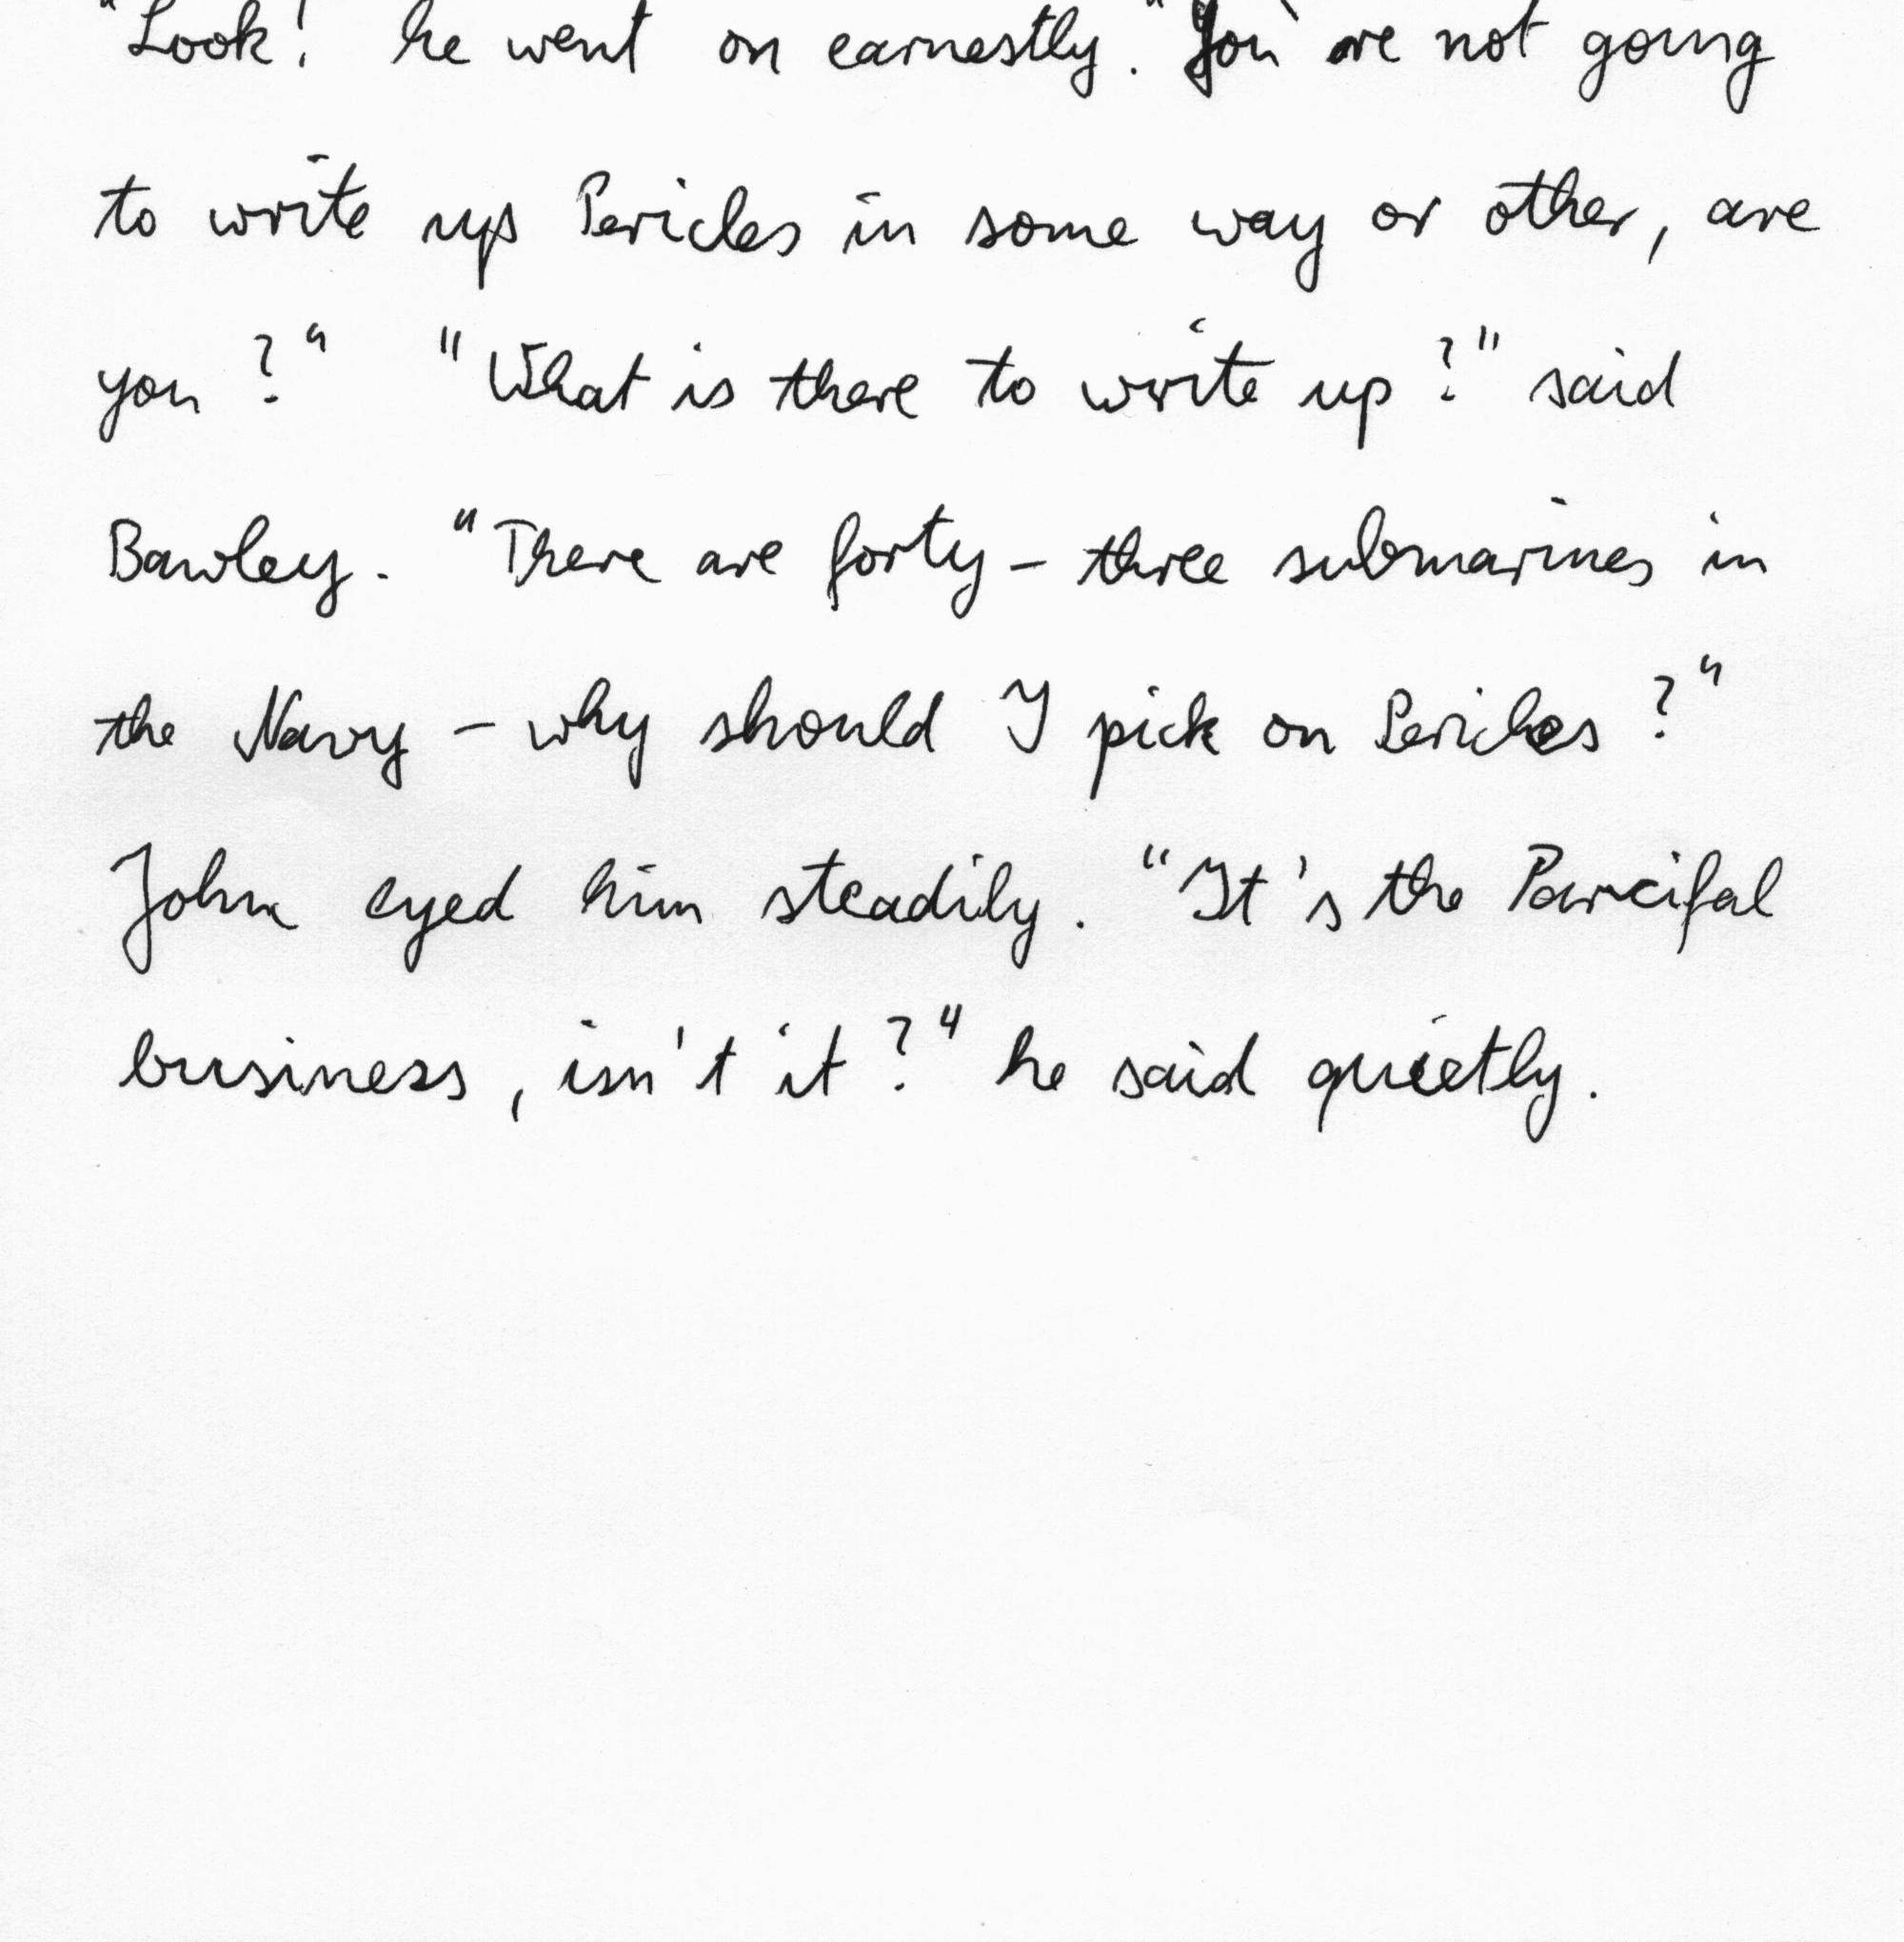 "Look! he went on earnestly. "You're not going
to write up Pericles in some way or other, are
you?" "What is there to write up?" said
Bawley. "There are forty-three submarines in
the Navy - why should I pick on Pericles?"
John eyed him steadily. "It's the Parcifal
business, isn't it?" he said quietly.